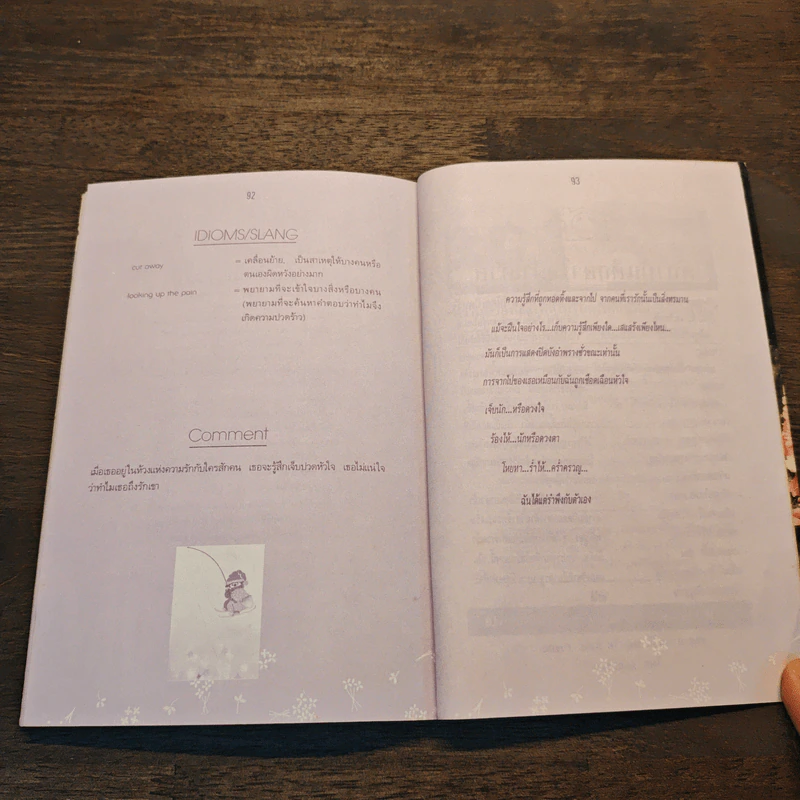 92
IDIOMS/SLANG
eat away
= เคลื่อนย้าย, เป็นสาเหตุให้บางคนหรือ
ตนเองผิดหวังอย่างมาก
looking up the pain
= พยายามที่จะเข้าใจบางสิ่งหรือบางคน
(พยายามที่จะค้นหาคำตอบว่าทำไมจึง
เกิดความปวดร้าว)
Comment
เมื่อเธออยู่ในห้วงแห่งความรักกับใครสักคน เธอจะรู้สึกเจ็บปวดหัวใจ เธอไม่แน่ใจ
ว่าทำไมเธอถึงรักเขา
93
ความรู้สึกที่ถูกทอดทิ้งและจากไป จากคนที่เรารักนั้นเป็นสิ่งทรมาน
แม้จะฝืนใจอย่างไร...เก็บความรู้สึกเพียงใด...เสแสร้งเพียงไหน...
มันก็เป็นการแสดงปิดบังอำพรางชั่วขณะเท่านั้น
การจากไปของเธอเหมือนกับฉันถูกเชือดเฉือนหัวใจ
เจ็บนัก...หรือดวงใจ
ร้องไห้...นักหรือดวงตา
โหยหา...ร่ำไห้...คร่ำครวญ...
ฉันได้แต่รำพึงกับตัวเอง